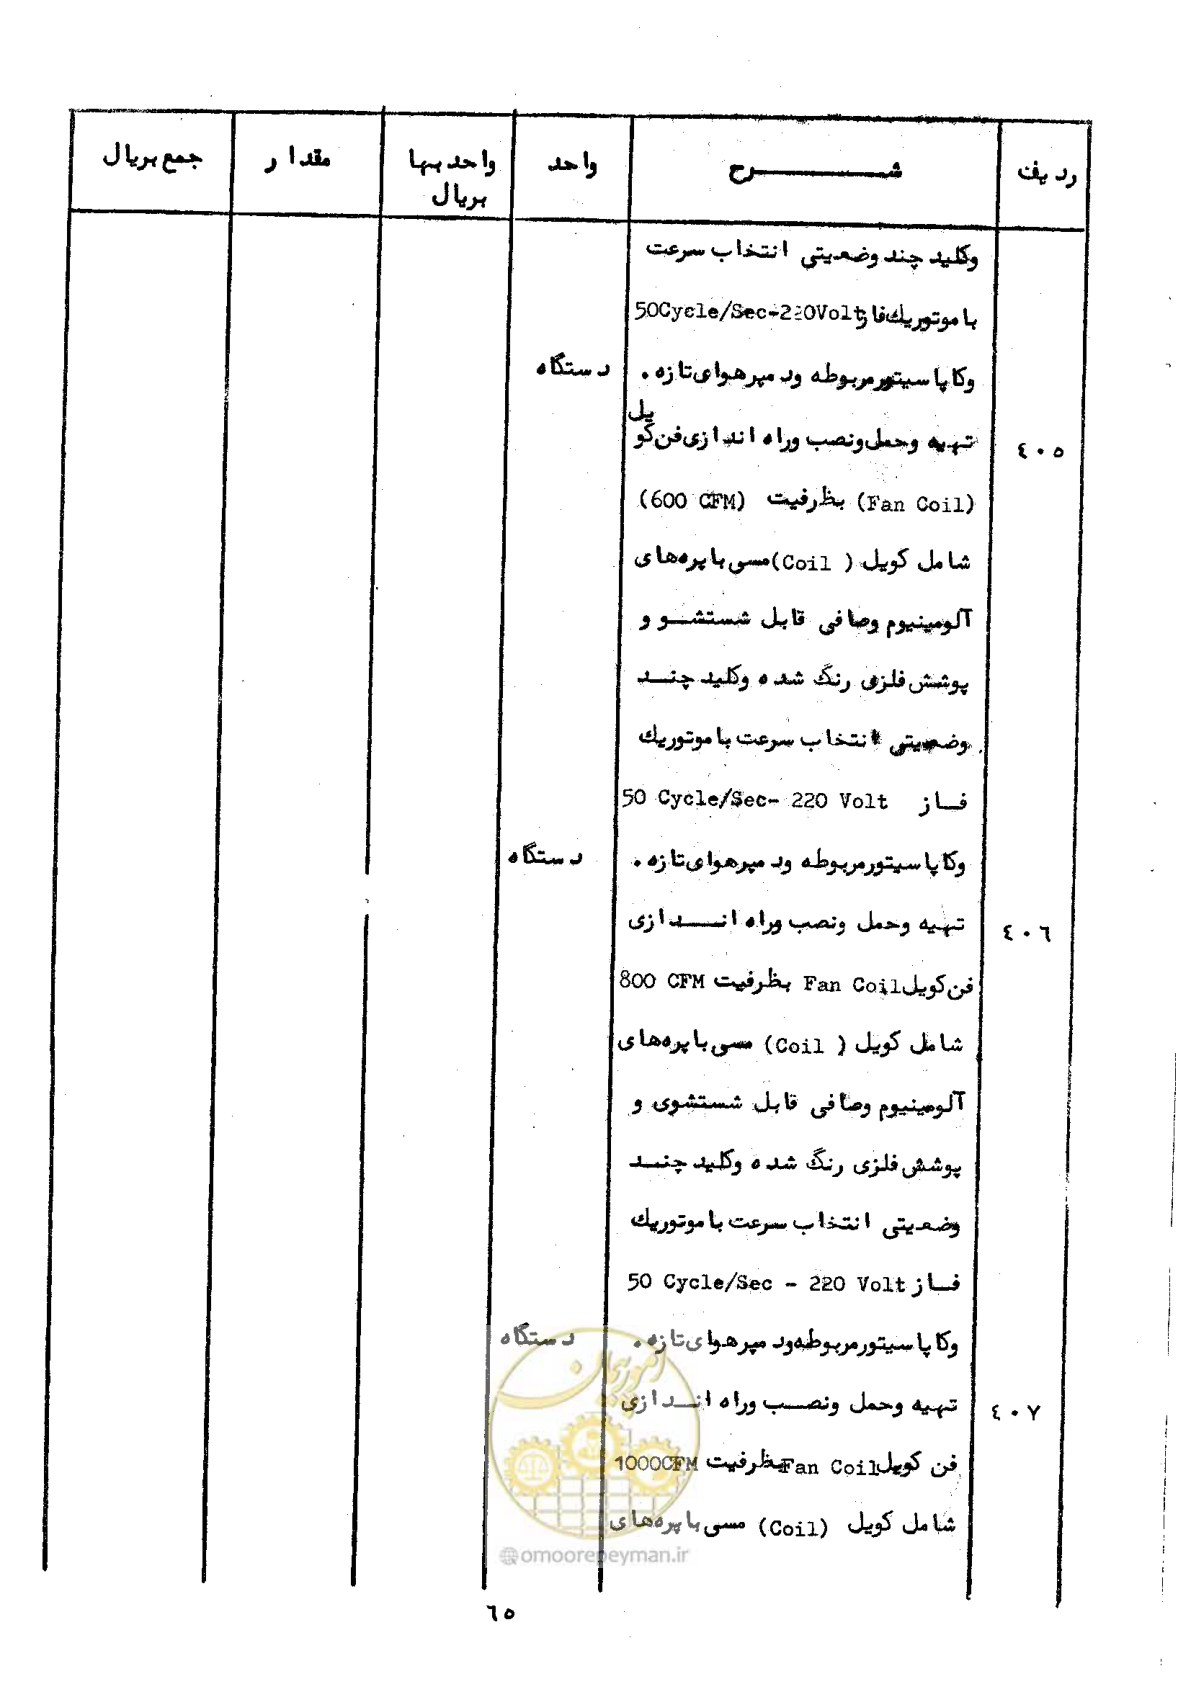 ردیف شـــــرح واحد واحد بها بریال مقدار جمع بریال
وکلید چند وضعیتی انتخاب سرعت
با موتور یک فاز 50Cycle/Sec-220Volt
وکاپاسیتور مربوطه ود میر هوای تازه . دستگاه
٤٠٥ تهیه وحمل ونصب وراه اندازی فن کویل
(Fan Coil) بظرفیت (600 CFM)
شامل کویل (Coil) مسی با پره‌های
آلومینیوم وصافی قابل شستشـو و
پوشش فلزی رنگ شده وکلید چنـد
وضعیتی انتخاب سرعت با موتور یک
فـاز 50 Cycle/Sec- 220 Volt
وکاپاسیتور مربوطه ود میر هوای تازه . دستگاه
٤٠٦ تهیه وحمل ونصب وراه انــدازی
فن کویل Fan Coil بظرفیت 800 CFM
شامل کویل (Coil) مسی با پره‌های
آلومینیوم وصافی قابل شستشوی و
پوشش فلزی رنگ شده وکلید چنـد
وضعیتی انتخاب سرعت با موتور یک
فـاز 50 Cycle/Sec - 220 Volt
وکاپاسیتور مربوطه ود میر هوای تازه . دستگاه
٤٠٧ تهیه وحمل ونصـب وراه انـدازی
فن کویل Fan Coil بظرفیت 1000CFM
شامل کویل (Coil) مسی با پره‌های
امور پیمان
@omoorepeyman.ir
٦٥